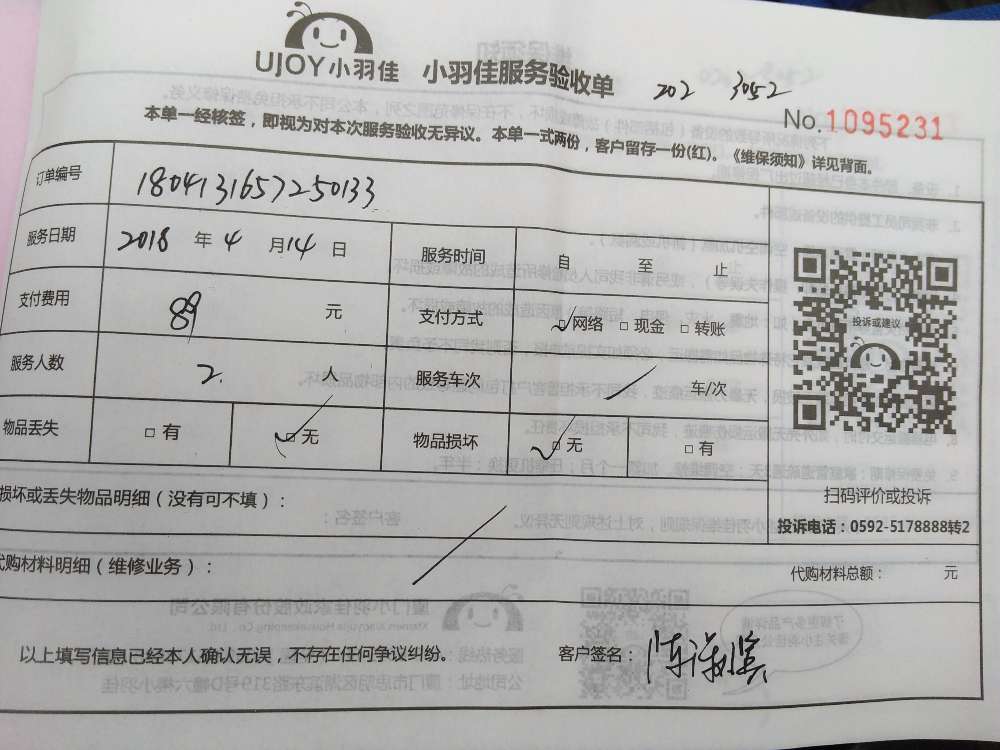 UJOY小羽佳 小羽佳服务验收单 202 3052
No.1095231
本单一经核签，即视为对本次服务验收无异议。本单一式两份，客户留存一份(红)。《维保须知》详见背面。
订单编号 1804131657250133
服务日期 2018 年 4 月 14 日 服务时间 自 至 止
支付费用 89 元 支付方式 ☑网络 □现金 □转账
投诉或建议
服务人数 2. 人 服务车次 车/次
物品丢失 □有 ☑无 物品损坏 ☑无 □有
扫码评价或投诉
损坏或丢失物品明细（没有可不填）：
投诉电话：0592-5178888转2
代购材料明细（维修业务）： 代购材料总额： 元
以上填写信息已经本人确认无误，不存在任何争议纠纷。 客户签名：